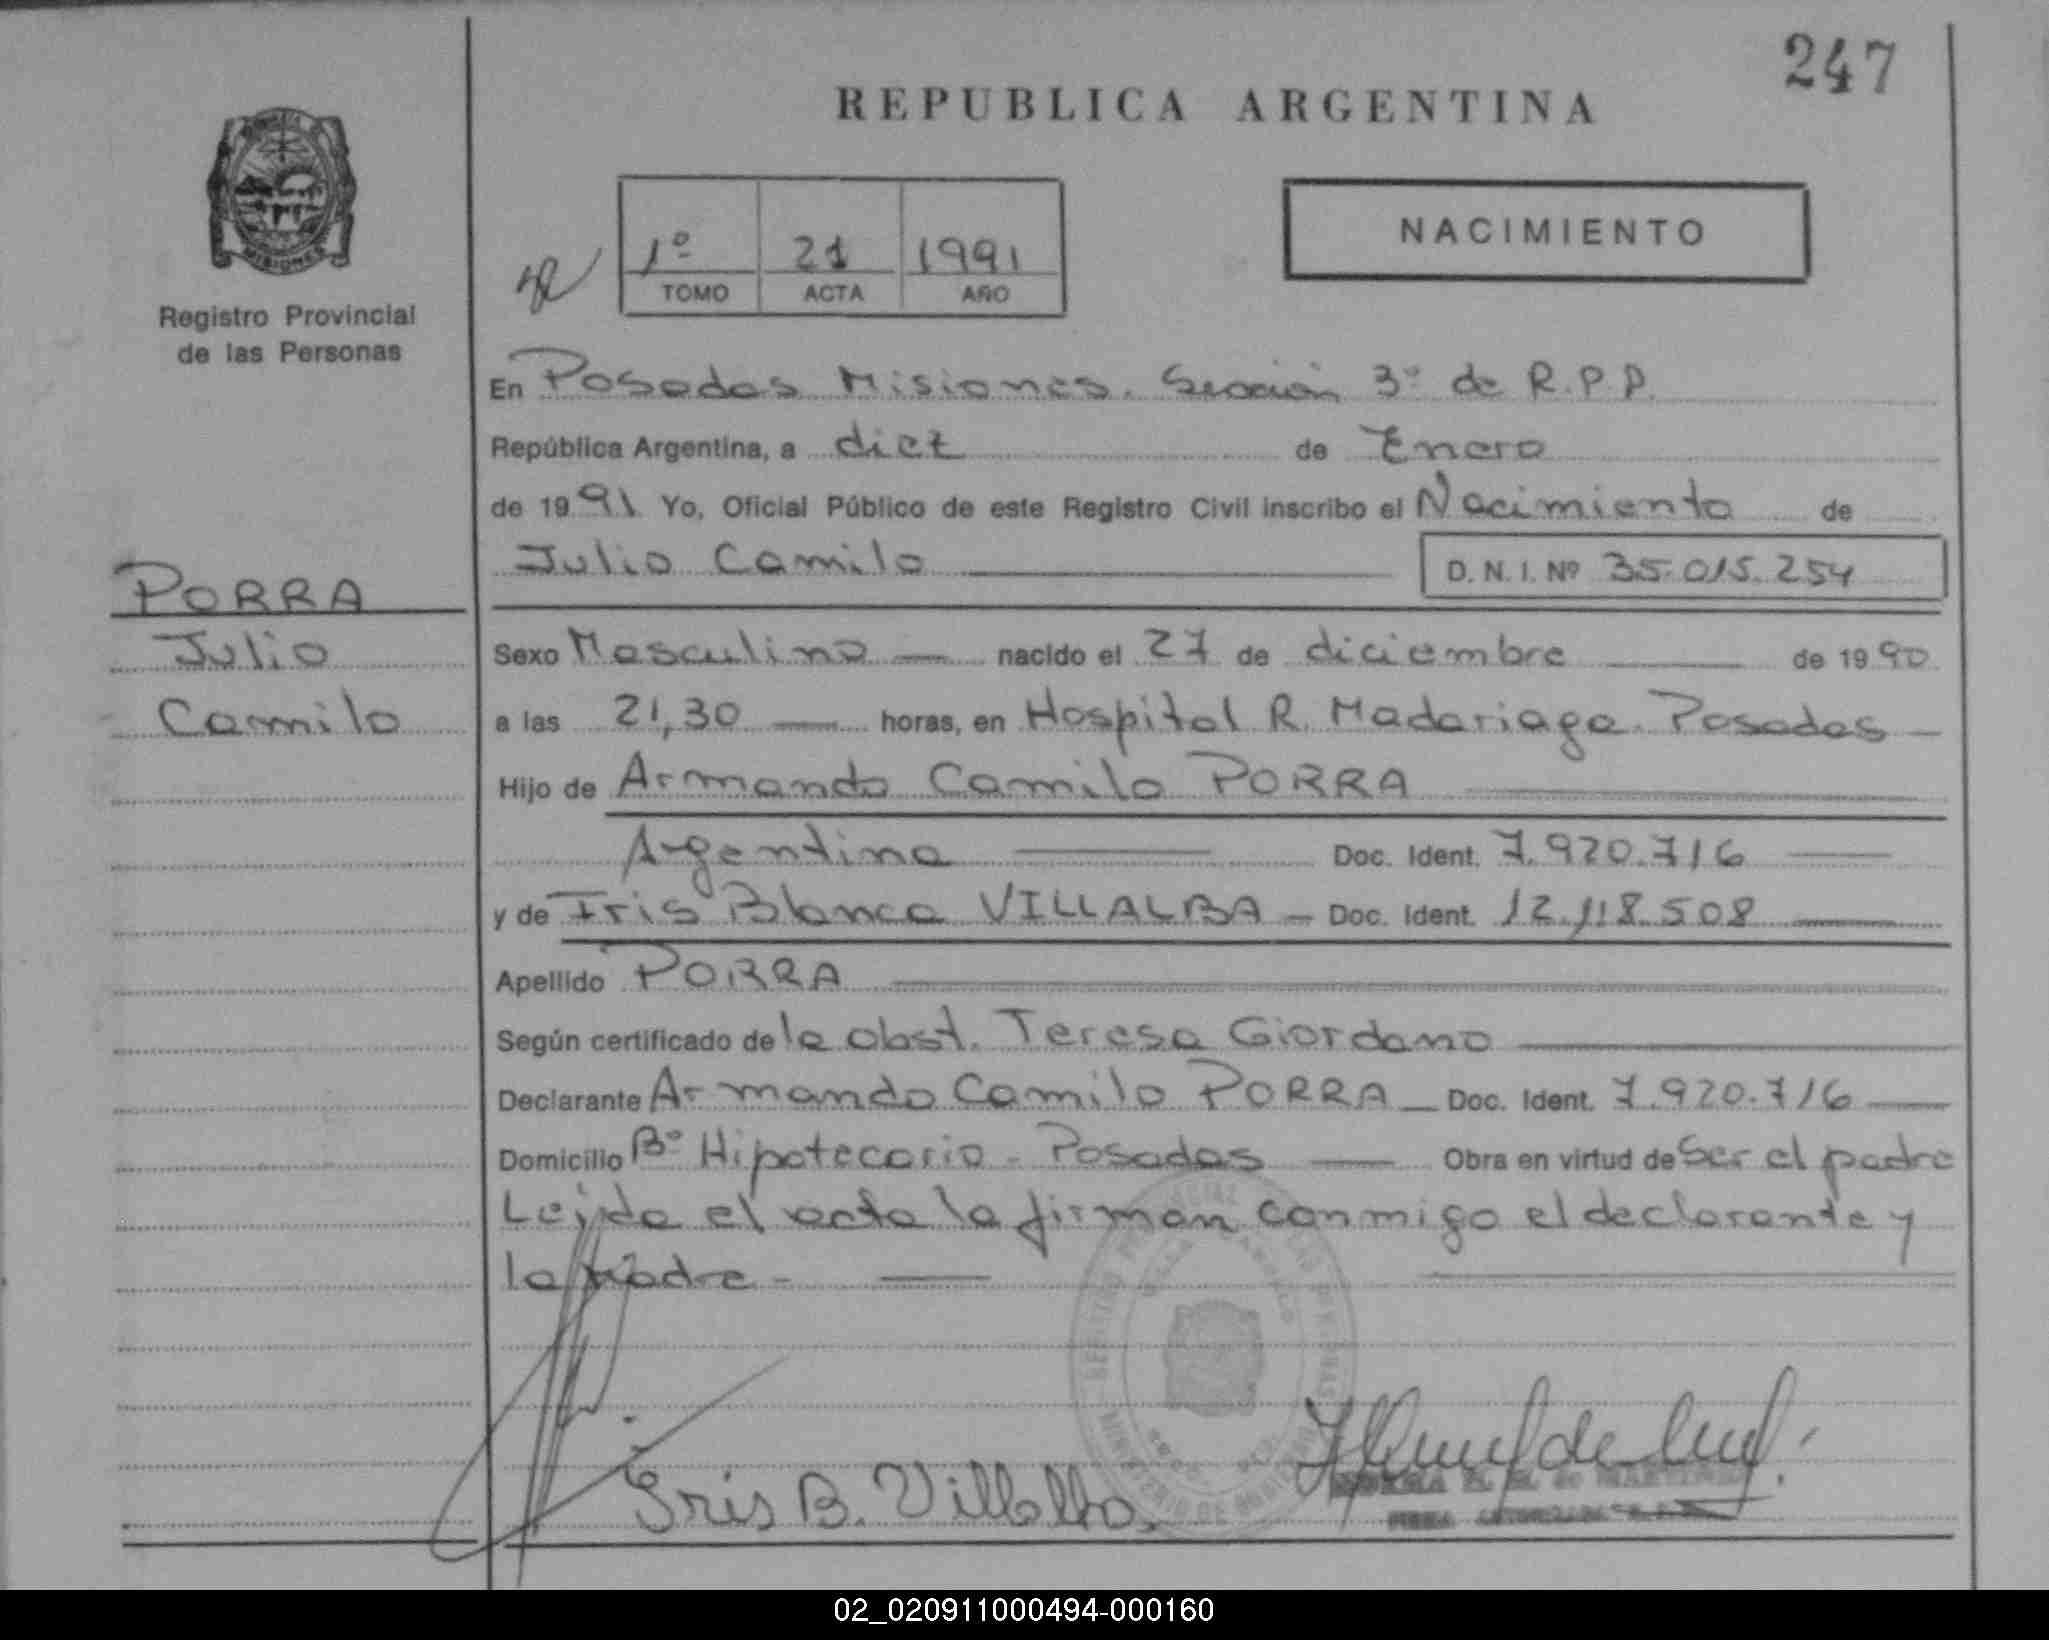 247
REPUBLICA ARGENTINA
NACIMIENTO
1º 21 1991
TOMO ACTA AÑO
MISIONES
Registro Provincial
de las Personas
En Posadas Misiones. Sección 3º de R.P.P.
República Argentina, a diez de Enero
de 1991 Yo, Oficial Público de este Registro Civil inscribo el Nacimiento de
Julio Camilo D. N. I. Nº 35.015.254
PORRA
Julio
Camilo
Sexo Masculino nacido el 27 de diciembre de 1990
a las 21,30 horas, en Hospital R. Madariaga. Posadas
Hijo de Armando Camilo PORRA
Argentina Doc. Ident. 7.920.716
y de Iris Blanca VILLALBA Doc. Ident. 12.118.508
Apellido PORRA
Según certificado de la obst. Teresa Giordano
Declarante Armando Camilo PORRA Doc. Ident. 7.920.716
Domicilio Bº Hipotecario - Posadas Obra en virtud de Ser el padre
Leída el acta la firman conmigo el declarante y
la madre -
Iris B. Villalba.
02_020911000494-000160